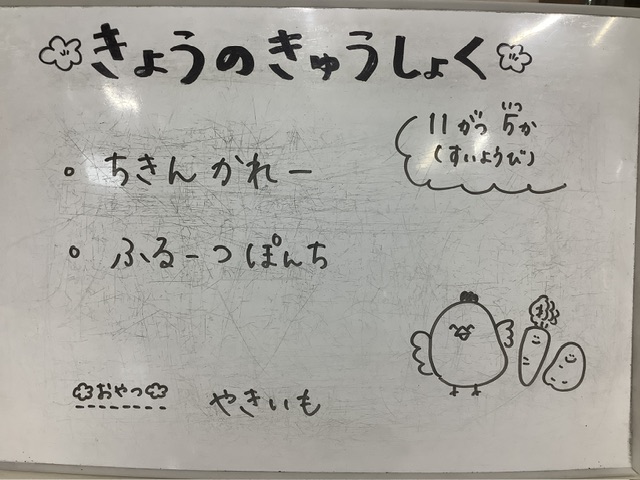 きょうのきゅうしょく
11がつ 5か
いつ
(すいようび)
ちきんかれー
ふるーつぽんち
おやつ やきいも